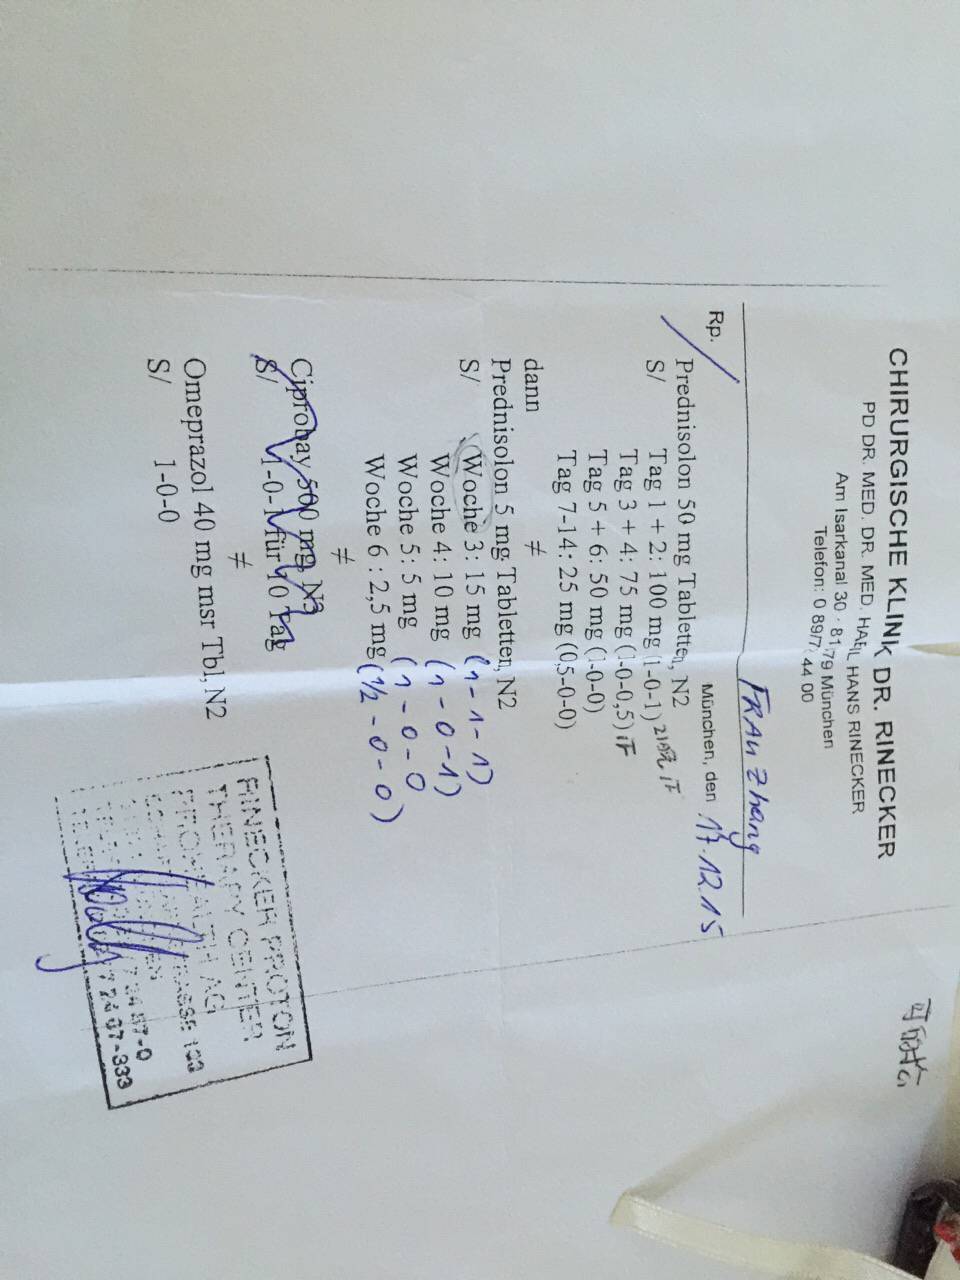 CHIRURGISCHE KLINK DR. RINECKER
PD DR. MED. DR. MED. HABIL HANS RINECKER
Am Isarkanal 30 · 81379 München
Telefon: 0 89/7 44 00
FRAU Zhang
München, den 17.12.15
Rp.
Prednisolon 50 mg Tabletten, N2
S/ Tag 1 + 2: 100 mg (1-0-1)
Tag 3 + 4: 75 mg (1-0-0,5)
Tag 5 + 6: 50 mg (1-0-0)
Tag 7-14: 25 mg (0,5-0-0)
≠
dann
Prednisolon 5 mg Tabletten, N2
S/ Woche 3: 15 mg (1-1-1)
Woche 4: 10 mg (1-0-1)
Woche 5: 5 mg (1-0-0
Woche 6 : 2,5 mg (1/2-0-0)
≠
Ciprobay 500 mg, N3
S/ 1-0-1 für 10 Tag
≠
Omeprazol 40 mg msr Tbl, N2
S/ 1-0-0
RINECKER PROTON
THERAPY CENTER
PROHEALTH AG
7 24 67-333